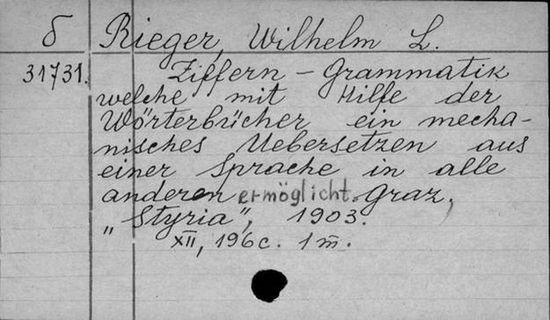 б Rieger, Wilhelm L.
31731. Ziffern-Grammatik
welche mit Hilfe der
Wörterbücher ein mecha-
nisches Uebersetzen aus
einer Sprache in alle
anderen ermöglicht. Graz,
„Styria", 1903.
XII, 196 c. 1 m.